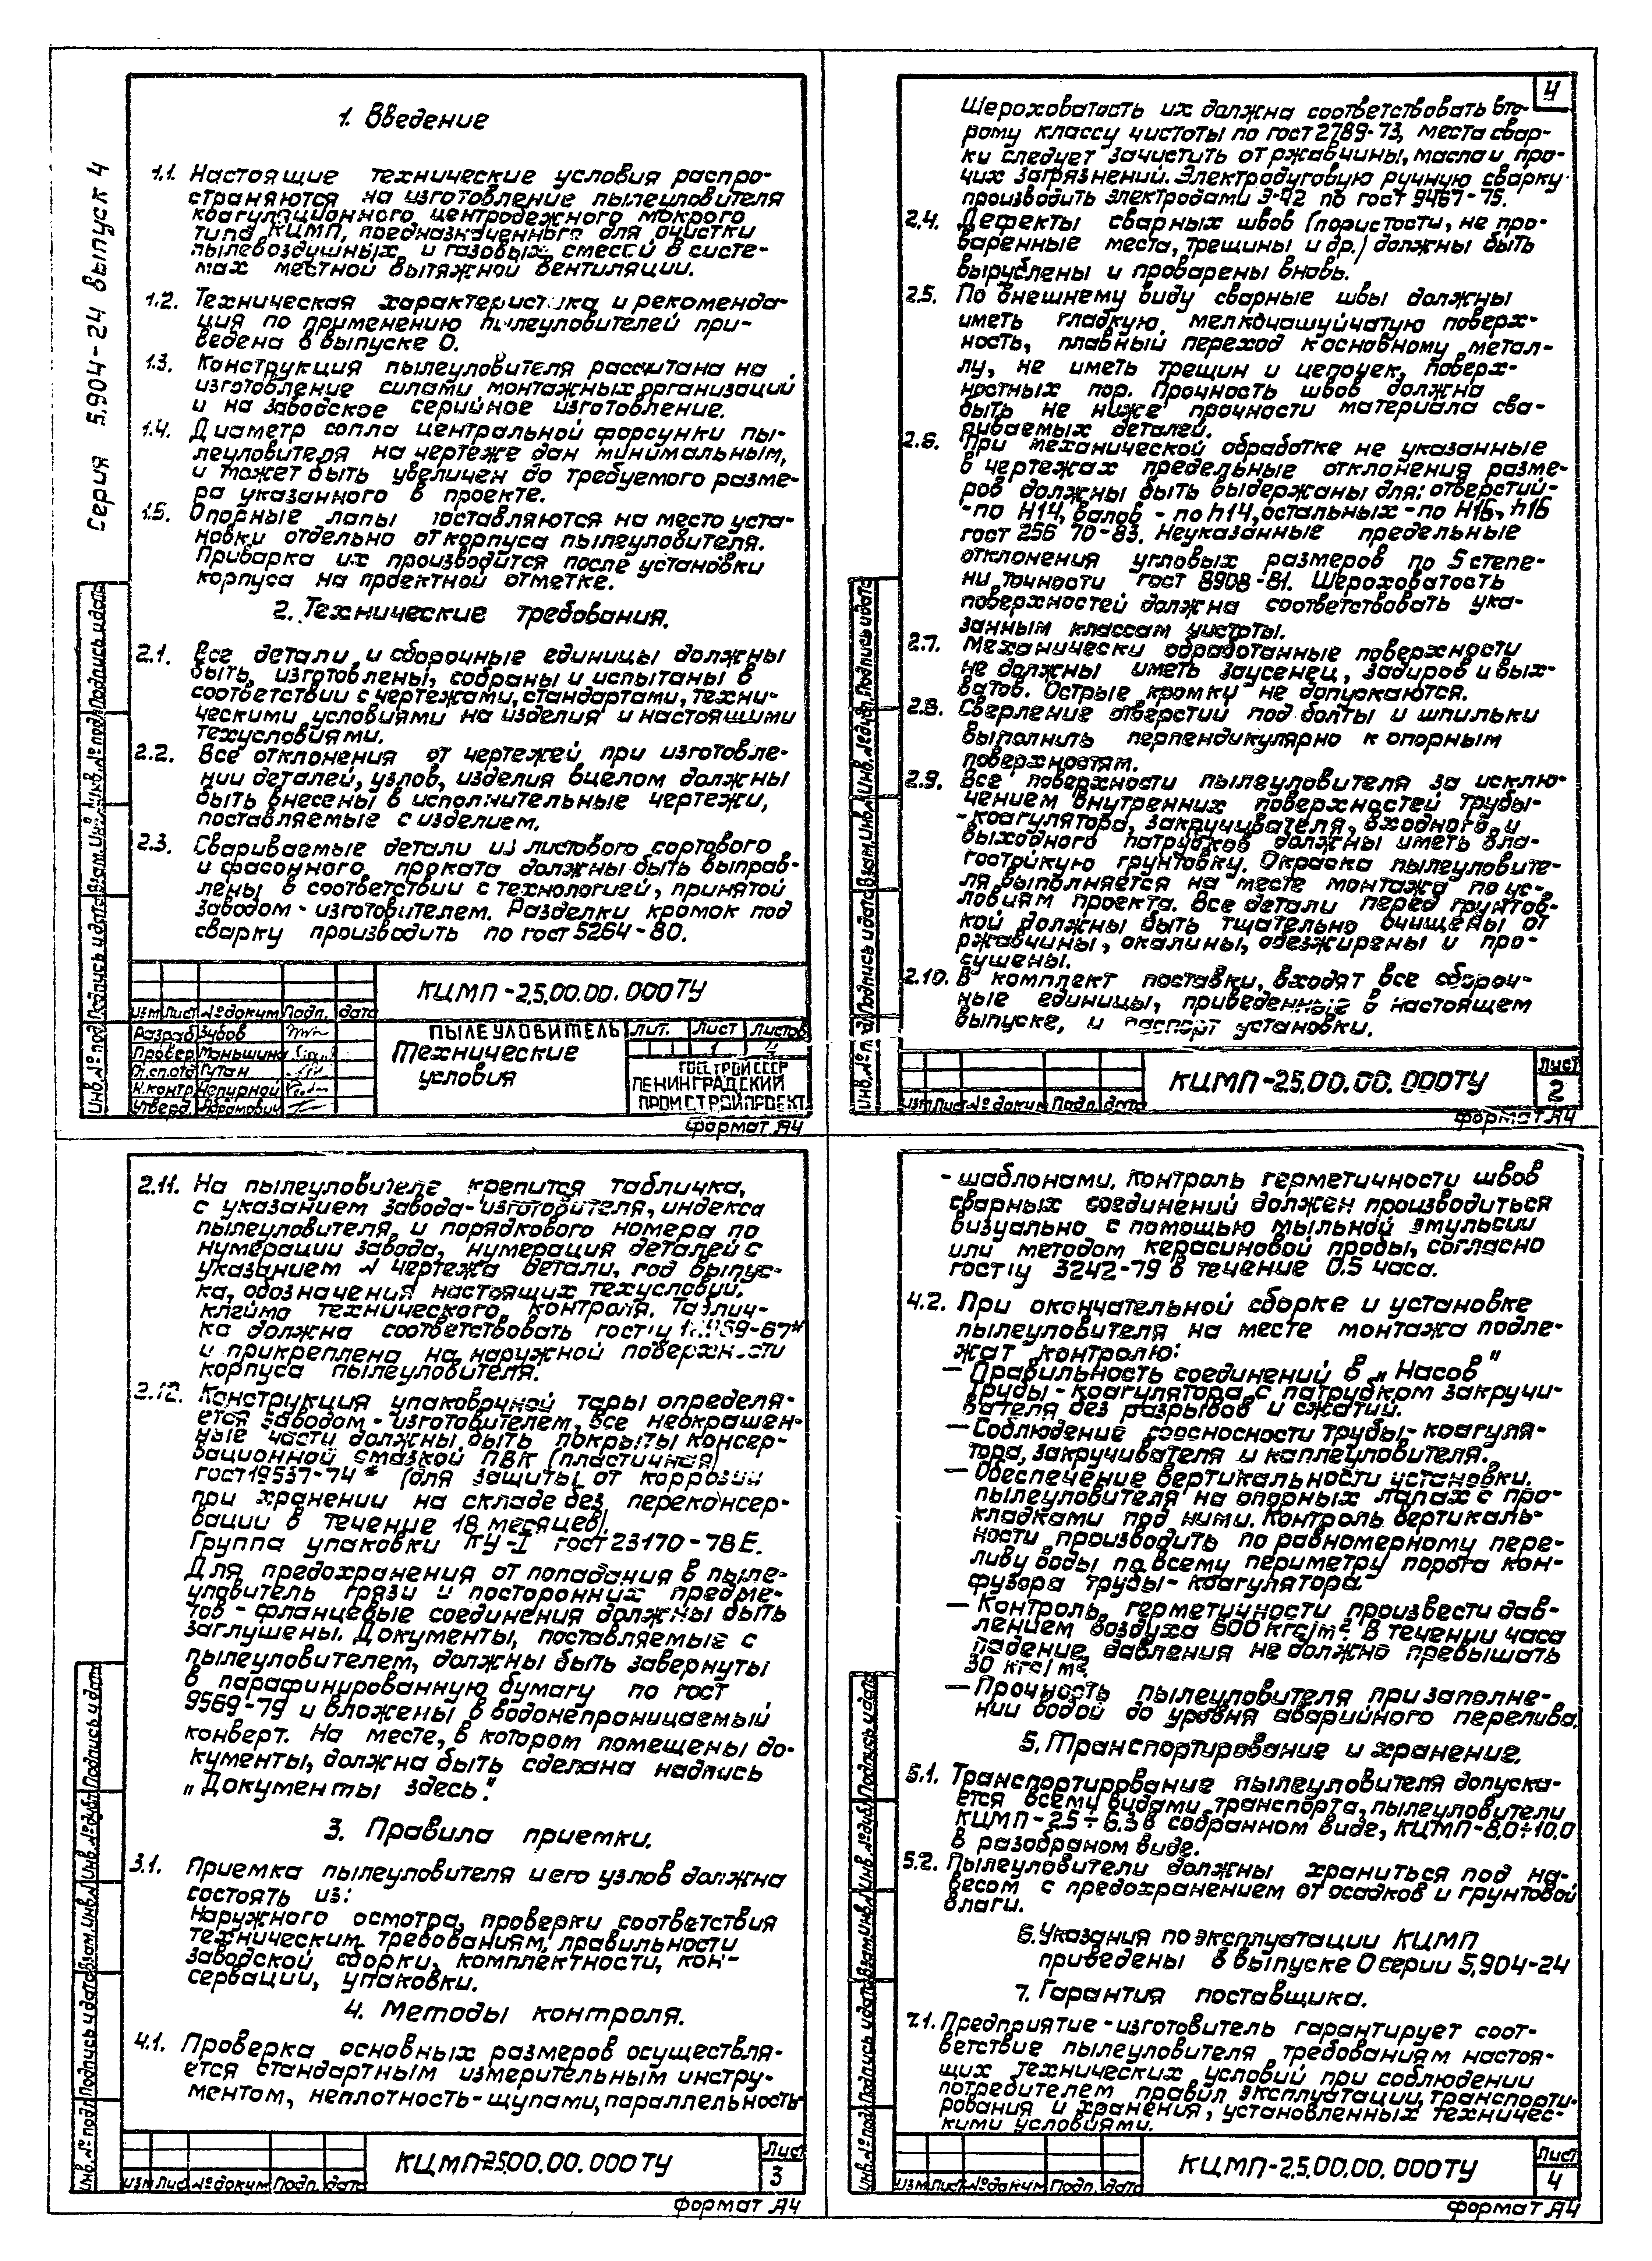 Серия 5.904-24 выпуск 4
1. Введение
1.1. Настоящие технические условия распро-
страняются на изготовление пылеуловителя
коагуляционного, центробежного мокрого
типа КЦМП, предназначенного для очистки
пылевоздушных и газовых смесей в систе-
мах местной вытяжной вентиляции.
1.2. Техническая характеристика и рекоменда-
ция по применению пылеуловителей при-
ведена в выпуске 0.
1.3. Конструкция пылеуловителя рассчитана на
изготовление силами монтажных организаций
и на заводское серийное изготовление.
1.4. Диаметр сопла центральной форсунки пы-
леуловителя на чертеже дан минимальным,
и может быть увеличен до требуемого разме-
ра указанного в проекте.
1.5. Опорные лапы поставляются на место уста-
новки отдельно от корпуса пылеуловителя.
Приварка их производится после установки
корпуса на проектной отметке.
2. Технические требования.
2.1. Все детали и сборочные единицы должны
быть изготовлены, собраны и испытаны в
соответствии с чертежами, стандартами, техни-
ческими условиями на изделия и настоящими
техусловиями.
2.2. Все отклонения от чертежей при изготовле-
нии деталей, узлов, изделия вцелом должны
быть внесены в исполнительные чертежи,
поставляемые с изделием.
2.3. Свариваемые детали из листового сортового
и фасонного проката должны быть выправ-
лены в соответствии с технологией, принятой
заводом-изготовителем. Разделки кромок под
сварку производить по гост 5264-80.
КЦМП-2,5.00.00.000ТУ
Изм Лист №докум Подп. дата
Разраб Зубов
Провер Маньшина
Гл.сп.отд Гутан
Н.контр Чепурной
Утверд. Абрамович
ПЫЛЕУЛОВИТЕЛЬ
Технические
условия
Лит. Лист Листов
1 4
ГОССТРОЙ СССР
ЛЕНИНГРАДСКИЙ
ПРОМСТРОЙПРОЕКТ
Инв.№подл Подпись и дата Взам.Инв.№ Инв.№подл Подпись и дата
Формат А4
4
Шероховатость их должна соответствовать вто-
рому классу чистоты по гост 2789-73, места свар-
ки следует зачистить от ржавчины, масла и про-
чих загрязнений. Электродуговую ручную сварку
производить электродами Э-42 по гост 9467-75.
2.4. Дефекты сварных швов (пористости, не про-
варенные места, трещины и др.) должны быть
вырублены и проварены вновь.
2.5. По внешнему виду сварные швы должны
иметь гладкую, мелкочашуйчатую поверх-
ность, плавный переход к основному метал-
лу, не иметь трещин и цепочек, поверх-
ностных пор. Прочность швов должна
быть не ниже прочности материала сва-
риваемых деталей.
2.6. При механической обработке не указанные
в чертежах предельные отклонения разме-
ров должны быть выдержаны для: отверстий-
-по Н14, валов - по h14, остальных - по Н16, h16
гост 256 70-83. Неуказанные предельные
отклонения угловых размеров по 5 степе-
ни точности гост 8908-81. Шероховатость
поверхностей должна соответствовать ука-
занным классам чистоты.
2.7. Механически обработанные поверхности
не должны иметь заусенец, задиров и вых-
ватов. Острые кромки не допускаются.
2.8. Сверление отверстий под болты и шпильки
выполнить перпендикулярно к опорным
поверхностям.
2.9. Все поверхности пылеуловителя за исклю-
чением внутренних поверхностей трубы-
-коагулятора, закручивателя, входного и
выходного патрубков должны иметь вла-
гостойкую грунтовку. Окраска пылеуловите-
ля выполняется на месте монтажа по ус-
ловиям проекта. Все детали перед грунтов-
кой должны быть тщательно очищены от
ржавчины, окалины, обезжирены и про-
сушены.
2.10. В комплект поставки входят все сбороч-
ные единицы, приведенные в настоящем
выпуске, и паспорт установки.
Изм Лист №докум Подп. дата
КЦМП-2,5.00.00.000ТУ
Лист
2
Инв.№п. Подпись и дата Взам.Инв.№ Инв.№дубл. Подпись и дата
Формат А4
2.11. На пылеуловителе крепится табличка,
с указанием завода-изготовителя, индекса
пылеуловителя, и порядкового номера по
нумерации завода, нумерация деталей с
указанием № чертежа детали, год выпус-
ка, обозначения настоящих техусловий.
клеймо технического контроля. Таблич-
ка должна соответствовать госту -67*
и прикреплена на наружной поверхности
корпуса пылеуловителя.
2.12. Конструкция упаковочной тары определя-
ется заводом-изготовителем, все неокрашен-
ные части должны быть покрыты консер-
вационной смазкой ПВК (пластичная)
гост 19537-74* (для защиты от коррозии
при хранении на складе без переконсер-
вации в течение 18 месяцев).
Группа упаковки КУ-I гост 23170-78Е.
Для предохранения от попадания в пыле-
уловитель грязи и посторонних предме-
тов - фланцевые соединения должны быть
заглушены. Документы, поставляемые с
пылеуловителем, должны быть завернуты
в парафинированную бумагу по гост
9569-79 и вложены в водонепроницаемый
конверт. На месте, в котором помещены до-
кументы, должна быть сделана надпись
„Документы здесь".
3. Правила приемки.
3.1. Приемка пылеуловителя и его узлов должна
состоять из:
наружного осмотра, проверки соответствия
техническим требованиям, правильности
заводской сборки, комплектности, кон-
сервации, упаковки.
4. Методы контроля.
4.1. Проверка основных размеров осуществля-
ется стандартным измерительным инстру-
ментом, неплотность-щупами, параллельность-
Изм Лист №докум Подп. дата
КЦМП-25.00.00.000ТУ
Лист
3
Инв.№подл Подпись и дата Взам.Инв.№ Инв.№дубл Подпись и дата
Формат А4
- шаблонами. Контроль герметичности швов
сварных соединений должен производиться
визуально с помощью мыльной эмульсии
или методом керасиновой пробы, согласно
госту 3242-79 в течение 0.5 часа.
4.2. При окончательной сборке и установке
пылеуловителя на месте монтажа подле-
жат контролю:
— Правильность соединений в „Насов"
трубы-коагулятора с патрубком закручи-
вателя без разрывов и сжатий.
— Соблюдение соосности трубы-коагуля-
тора, закручивателя и каплеуловителя.
— Обеспечение вертикальности установки.
пылеуловителя на опорных лапах с про-
кладками под ними. Контроль вертикаль-
ности производить по равномерному пере-
ливу воды по всему периметру порога кон-
фузора трубы-коагулятора.
— Контроль герметичности произвести дав-
лением воздуха 600 кгс/м². В течении часа
падение давления не должно превышать
30 кгс/м².
— Прочность пылеуловителя при заполне-
нии водой до уровня аварийного перелива.
5. Транспортирование и хранение.
5.1. Транспортирование пылеуловителя допуска-
ется всеми видами транспорта, пылеуловители
КЦМП-2.5÷6.3 в собранном виде, КЦМП-8,0÷10.0
в разобраном виде.
5.2. Пылеуловители должны храниться под на-
весом с предохранением от осадков и грунтовой
влаги.
6. Указания по эксплуатации КЦМП
приведены в выпуске 0 серии 5.904-24
7. Гарантия поставщика.
7.1. Предприятие-изготовитель гарантирует соот-
ветствие пылеуловителя требованиям настоя-
щих технических условий при соблюдении
потребителем правил эксплуатации, транспорти-
рования и хранения, установленных техничес-
кими условиями.
Изм Лист №докум Подп. дата
КЦМП-2,5.00.00.000ТУ
Лист
4
Инв.№подл Подпись и дата Взам.Инв.№ Инв.№дубл Подпись и дата
Формат А4